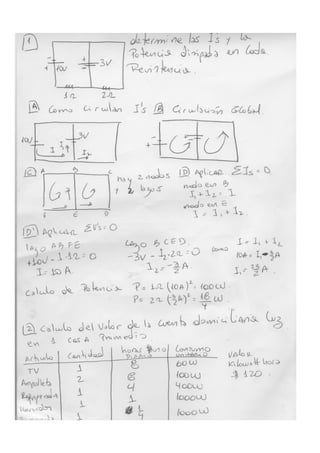 1 determine las I's y la
Potencia disipada en Cada
Resistencia.
10V 3V
1Ω 2Ω
A Como circulan I's B Circulación Global
10V 3V
I I2
C A B C
hay 2 nodos
y 2 lazos
D Aplicar ΣIs = 0
nodo en B
I1 + I2 = I
nodo en E
I = I1 + I2.
D' Aplicar ΣV's = 0
lazo A B F E
+10V - I·1Ω = 0
I = 10A.
Lazo B C E D.
-3V - I2·2Ω = 0
I2 = -3/2 A.
como I = I1 + I2
10A = I1 - 3/2 A
Calculo de Potencia P = 1Ω (10A)² = 100W
P = 2Ω (-3/2 A)² = 18/4 W
2 Calculo del Valor de la Cuenta domiciliaria Luz
en 1 casa Promedio
Articulo Cantidad horas Consumo
TV 1 8 60W
Ampolleta 2 8 100W
Refrigerador 1 4 400W
1 1 1000W
1 1/4 1000W
Valor
Kilowatt hora
$ 120.